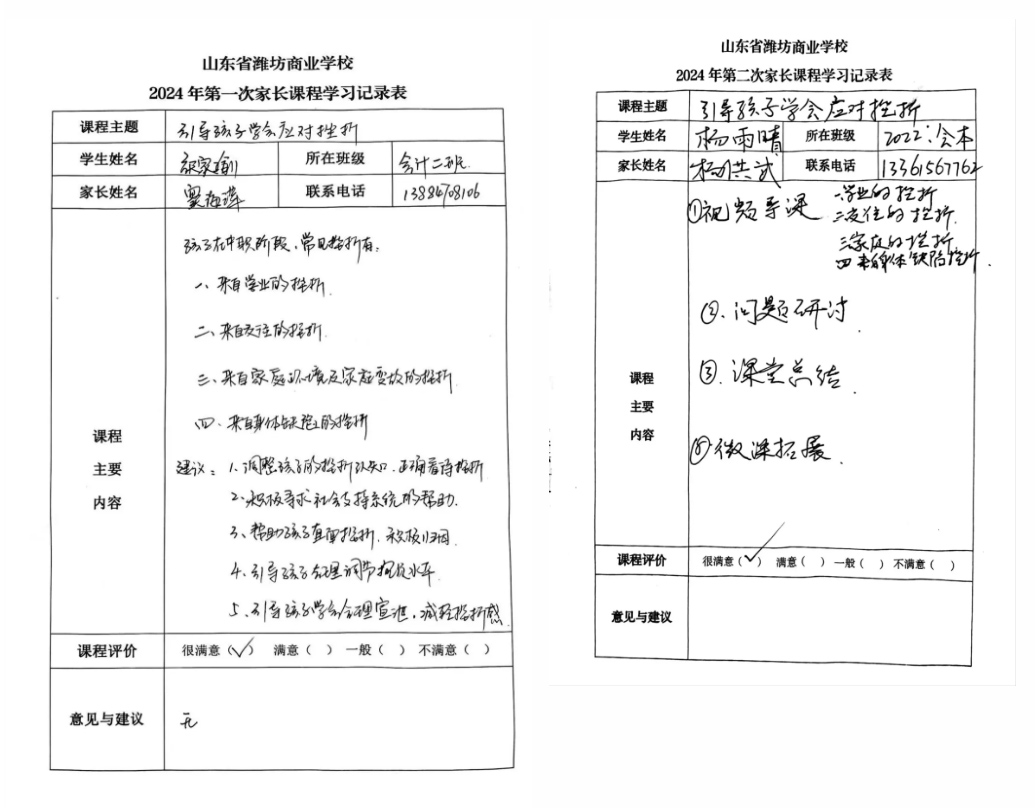 山东省潍坊商业学校
2024 年第一次家长课程学习记录表
课程主题 引导孩子学会应对挫折
学生姓名 张家瑜 所在班级 会计二班
家长姓名 联系电话 13884708106
课程主要内容
孩子在中职阶段,常见挫折有:
一、来自学业的挫折
二、来自交往的挫折
三、来自家庭环境及家庭变故的挫折
四、来自身体缺陷上的挫折
建议:1、调整孩子的挫折认知,正确看待挫折
2、积极寻求社会支持系统的帮助.
3、帮助孩子直面挫折,积极归因
4、引导孩子合理调节抱负水平
5、引导孩子学会合理宣泄,减轻挫折感
课程评价 很满意(✓) 满意( ) 一般( ) 不满意( )
意见与建议 无
山东省潍坊商业学校
2024 年第二次家长课程学习记录表
课程主题 引导孩子学会应对挫折
学生姓名 杨雨晴 所在班级 2022:会本
家长姓名 杨洪武 联系电话 13361567762
课程主要内容
①视频导课 一学业的挫折
二交往的挫折.
三家庭的挫折
四来自身体缺陷挫折.
②.问题研讨
③.课堂总结
④微课拓展.
课程评价 很满意(✓) 满意( ) 一般( ) 不满意( )
意见与建议